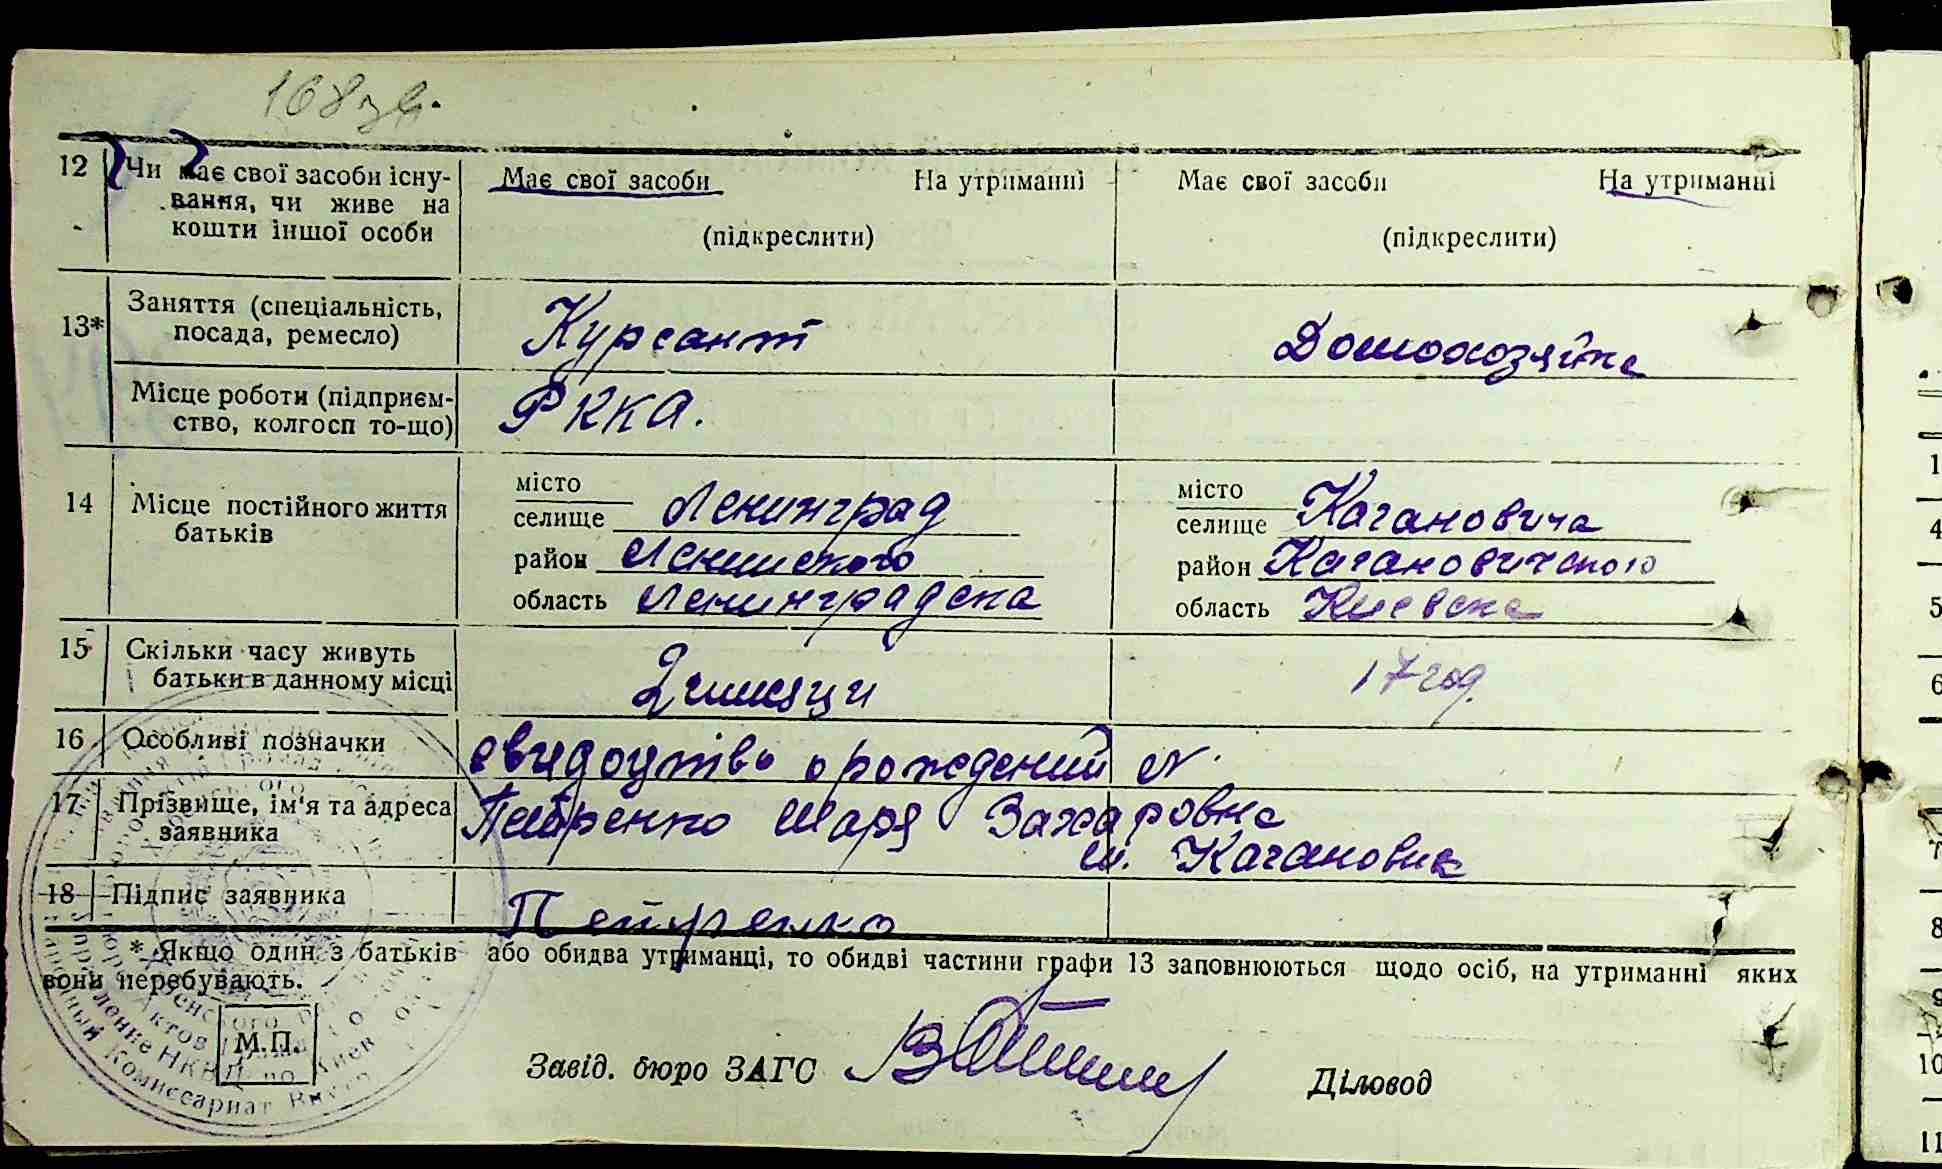 168 зв.
12 Чи має свої засоби існу- Має свої засоби На утриманні Має свої засоби На утриманні
вання, чи живе на
кошти іншої особи (підкреслити) (підкреслити)
13* Заняття (спеціальність, Курсант Домохозяйка
посада, ремесло)
Місце роботи (підприєм- РККА.
ство, колгосп то-що)
14 Місце постійного життя місто місто
батьків селище Ленинград селище Кагановича
район Ленинского район Кагановичского
область Ленинградска область Киевска
15 Скільки часу живуть 2 місяци 17 год.
батьки в данному місці
16 Особливі позначки свидоцтво о рождений N
17 Прізвище, ім'я та адреса Петренко Маря Захаровна
заявника м. Каганович
18 Підпис заявника Петренко
* Якщо один з батьків або обидва утриманці, то обидві частини графи 13 заповнюються щодо осіб, на утриманні яких
вони перебувають.
М.П.
Завід. бюро ЗАГС Діловод
1
4
5
6
7
8
9
10
11